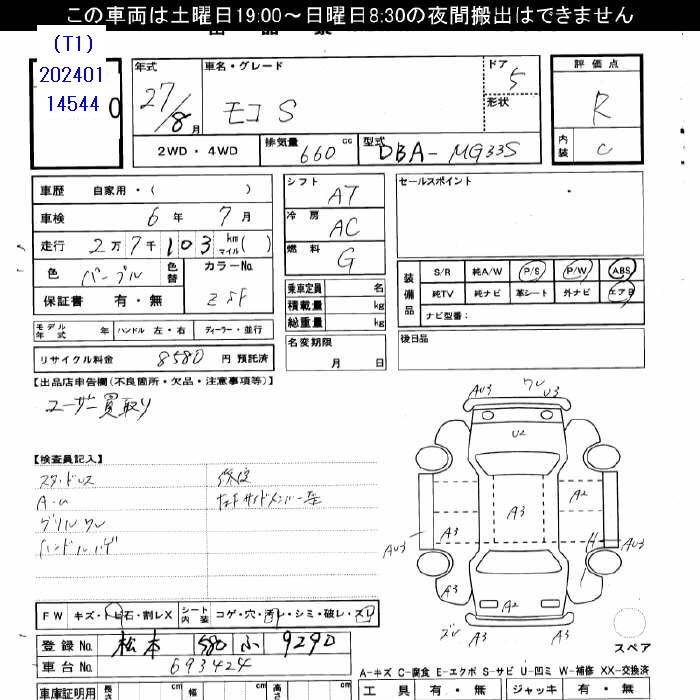 この車両は土曜日19:00～日曜日8:30の夜間搬出はできません
(T1)
202401
14544
年式 車名・グレード ドア 5
27/8月 モコ S 形状
評価点 R
内装 C
2WD・4WD 排気量 660 cc 型式 DBA-MG33S
車歴 自家用・( )
車検 6年 7月
走行 2万7千103 km マイル( )
色 パープル 色替 カラーNo. Z5F
保証書 有・無
シフト AT
冷房 AC
燃料 G
乗車定員 名
積載量 kg
総重量 kg
名変期限 月 日
セールスポイント
装備品 S/R 純A/W P/S P/W ABS
純TV 純ナビ 革シート 外ナビ エアB
ナビ型番：
後日品
モデル年式 年 ハンドル 左・右 ディーラー・並行
リサイクル料金 8580 円 預託済
【出品店申告欄(不良箇所・欠品・注意事項等)】
ユーザー買取り
【検査員記入】
スタッドレス 修復
A-ム
グリルワレ
ハンドルハゲ
AU3 ワレ AU3
U2
A2
A3
A3
AU3
H
AU3
A3
A3
A2
ズレ A3 A3
スペア
FW キズ・トビ石・割レX シート内装 コゲ・穴・汚レ・シミ・破レ・スレ
登録No. 松本 580 ふ 9290
車台No. 693424
A-キズ C-腐食 E-エクボ S-サビ U-凹ミ W-補修 XX-交換済
車庫証明用 長 cm 幅 cm 高 cm
工具 有・無 ジャッキ 有・無